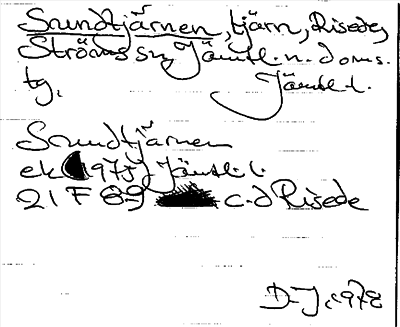 Sundtjärnen, tjärn, Risede,
Ströms sn, Jämtl. n. doms.
tg, Jämtl. l.
Sundtjärnen
ek 1975 Jämtl. l.
21 F 8-9 c-d Risede
D-J, 1978